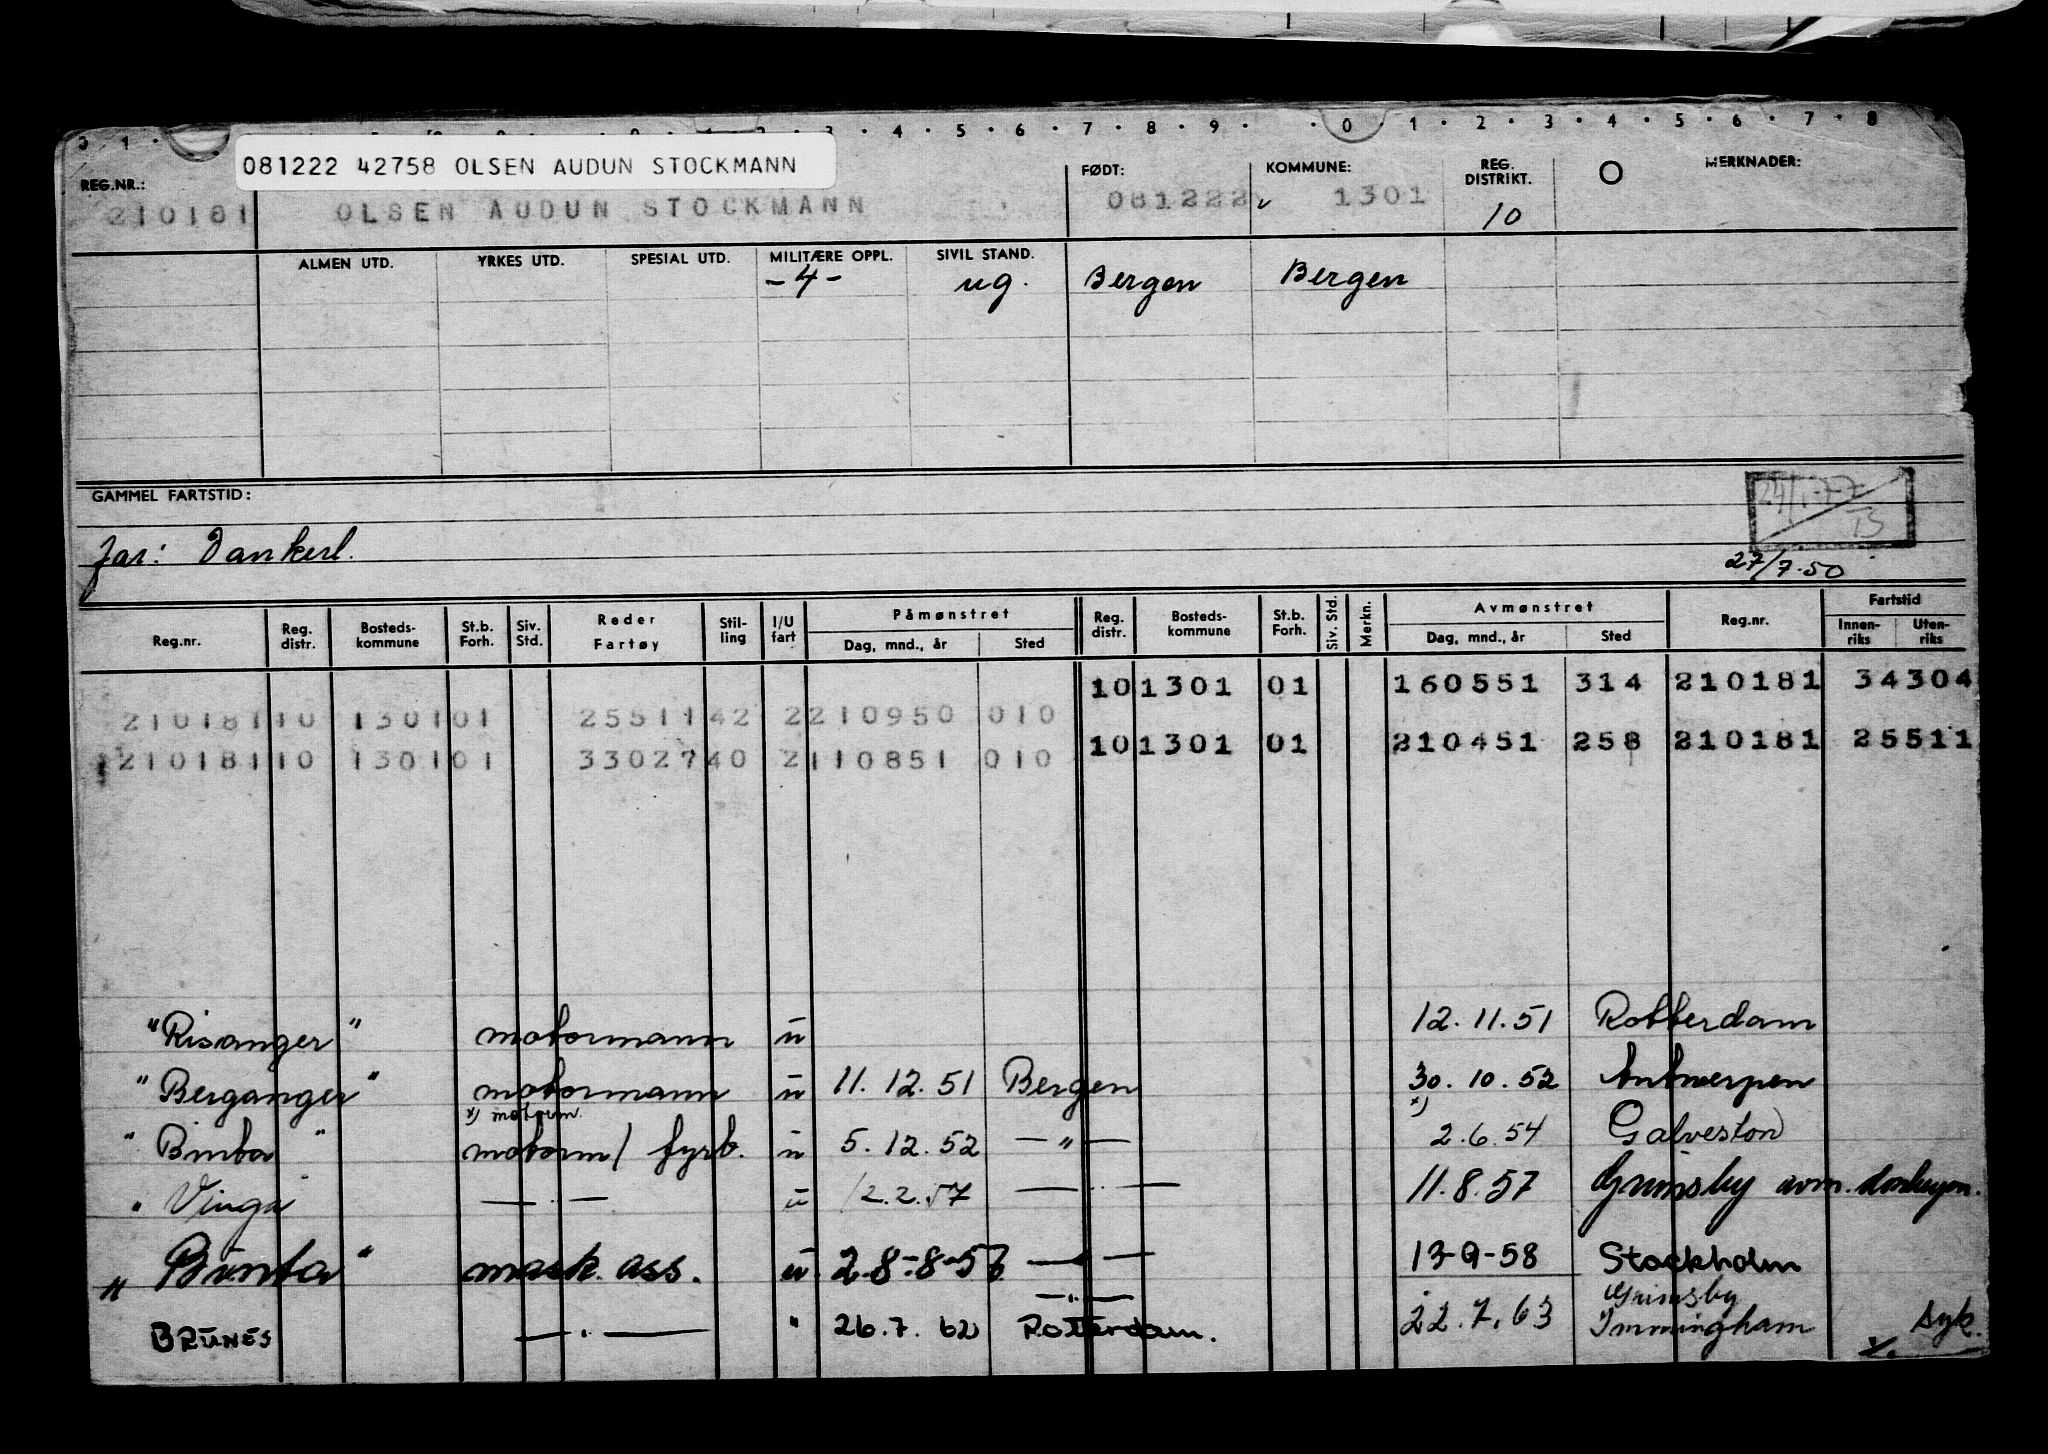 081222 42758 OLSEN AUDUN STOCKMANN
REG.NR.: FØDT: KOMMUNE: REG. DISTRIKT. O MERKNADER:
210181 OLSEN AUDUN STOCKMANN 081222 1301 10
ALMEN UTD. YRKES UTD. SPESIAL UTD. MILITÆRE OPPL. SIVIL STAND.
-4- ug. Bergen Bergen
GAMMEL FARTSTID:
27/7.50
Reg.nr. Reg. distr. Bosteds- kommune St.b. Forh. Siv. Std. Reder Fartøy Stil- ling I/U fart Påmønstret Dag, mnd., år Sted Reg. distr. Bosteds- kommune St.b. Forh. Siv. Std. Merkn. Avmønstret Dag, mnd., år Sted Reg.nr. Fartstid Innen- riks Uten- riks
10 1301 01 160551 314 210181 34304
210181 10 1301 01 25511 42 2 210950 010
10 1301 01 210451 258 210181 25511
210181 10 1301 01 33027 40 2 110851 010
"Risanger" motormann u 12.11.51 Rotterdam
"Berganger" motormann u 11.12.51 Bergen 30.10.52 Antwerpen
x) motorm. x)
"Binta" motorm/ fyrb. u 5.12.52 —"— 2.6.54 Galveston
" Vinga — " — u 12.2.57 — " — 11.8.57 Grimsby avm.
" Binta" mask. ass. u 28-8-57 — " — 13-9-58 Stockholm
— " — Grimsby
BRUNES — " — " 26.7.62 Rotterdam. 22.7.63 Immingham syk.